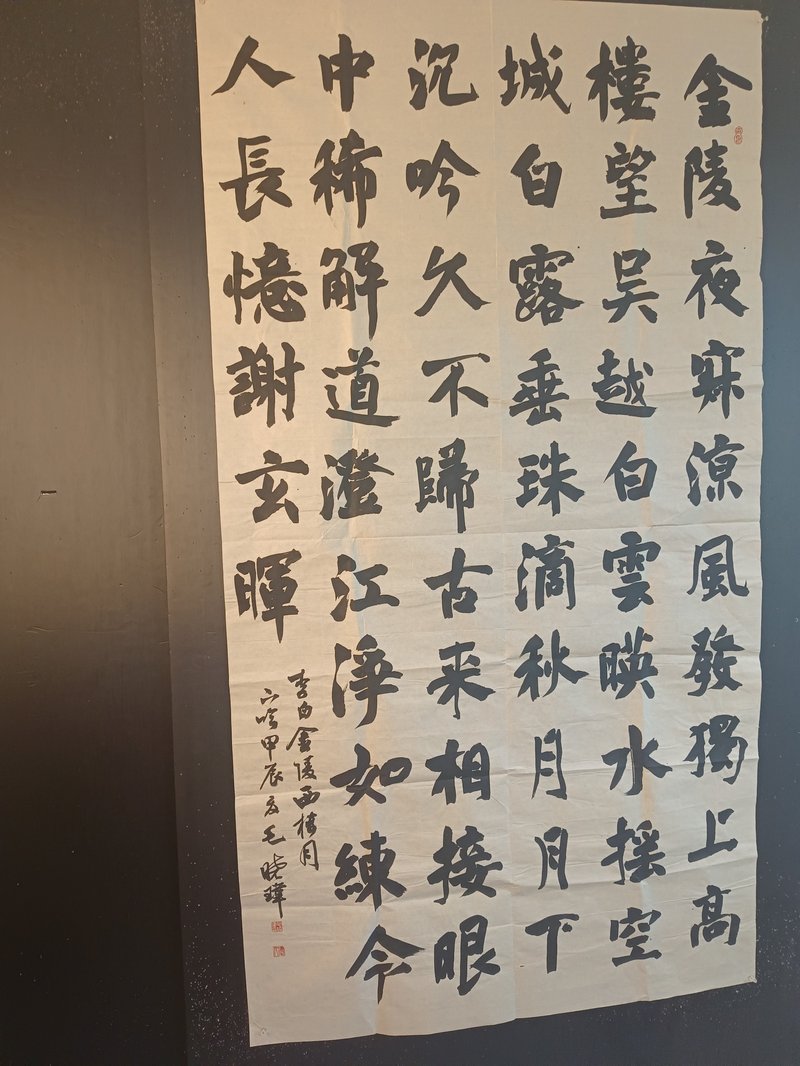 金陵夜寂涼風發獨上高
樓望吳越白雲暎水摇空
城白露垂珠滴秋月月下
沉吟久不歸古来相接眼
中稀解道澄江淨如練今
人長憶謝玄暉
李白金陵西樓月
下吟甲辰夏毛曉瑋